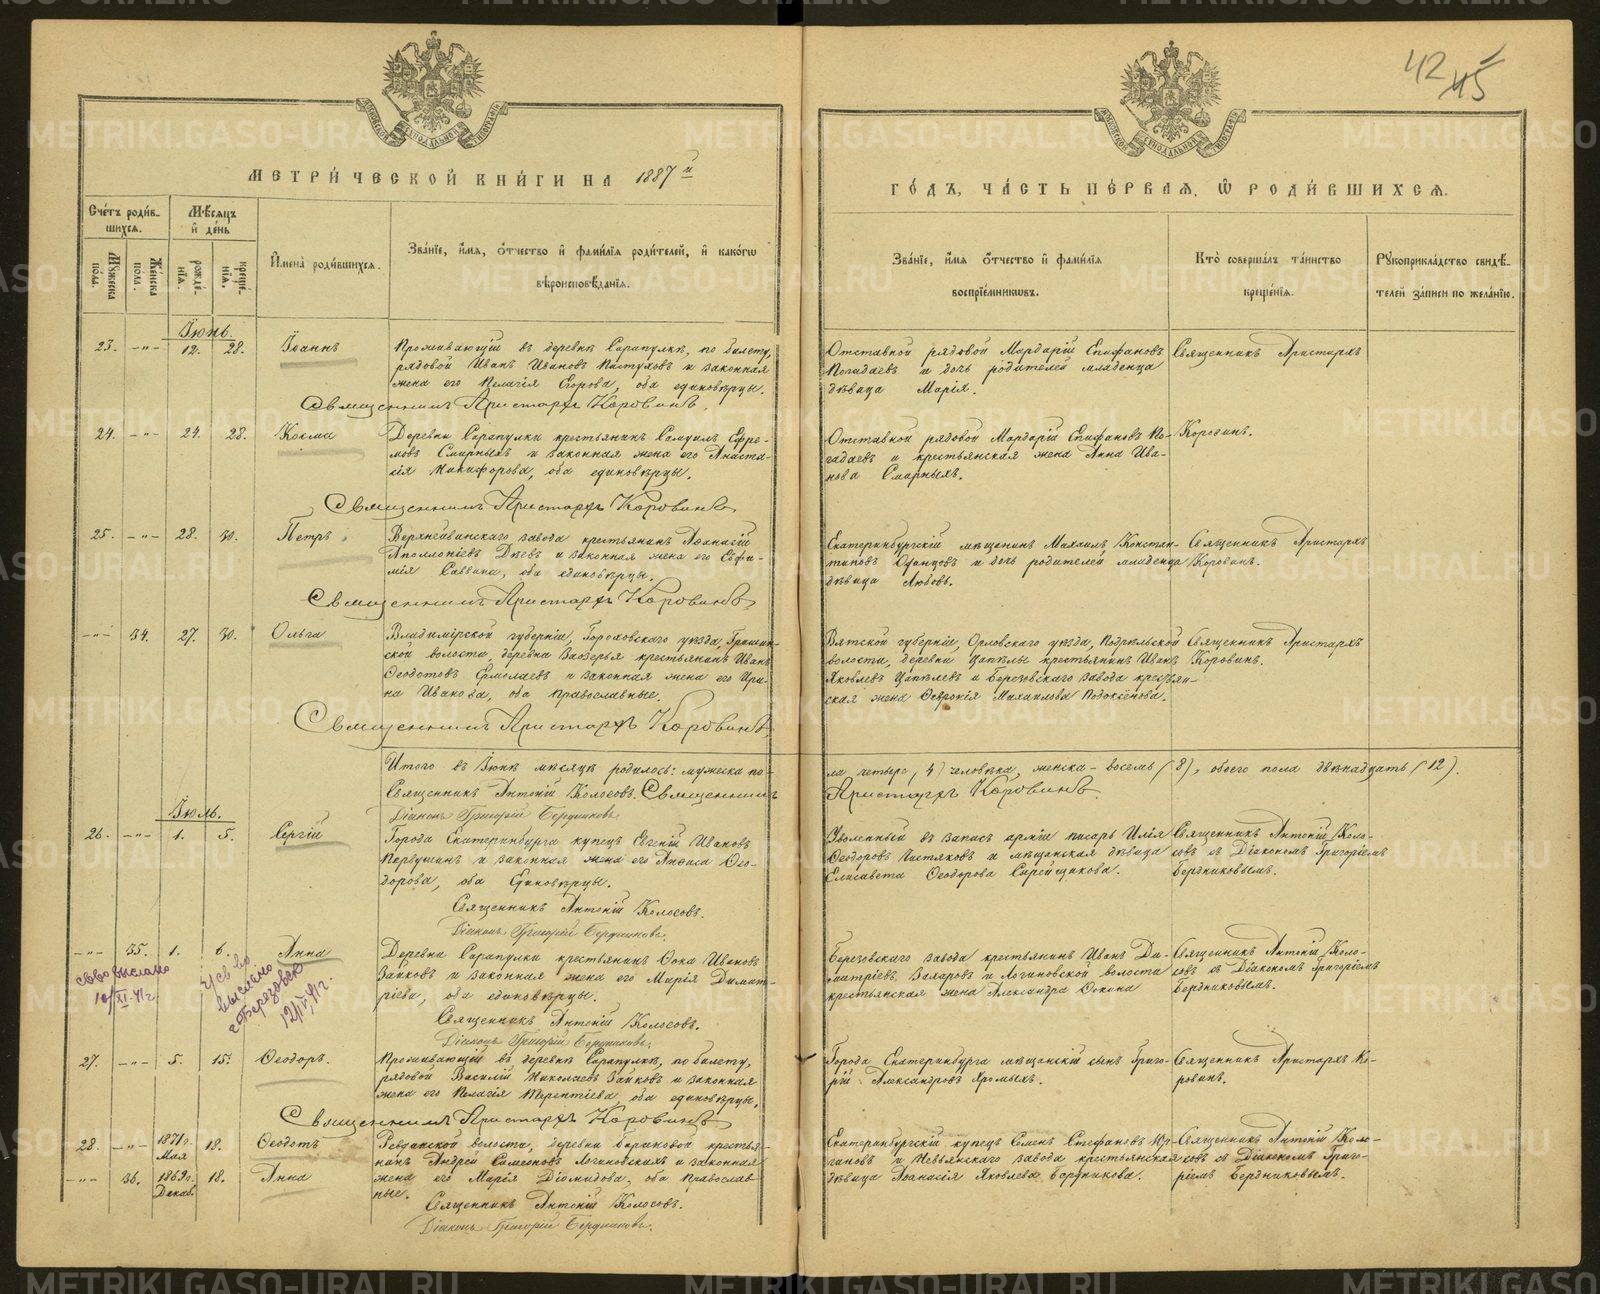 МЕТРИ́ЧЕСКОЙ КНИ́ГИ НА 1887й
ГО́ДЪ, ЧА́СТЬ ПЕ́РВАЯ, Ѡ РОДИ́ВШИХСЯ.
42 45
Сче́тъ роди́в-
шихся.
Мѹ́жеска
по́ла.
Же́нска
по́ла.
Мѣ́сяцъ
и де́нь
рожде́-
нїя.
креще́-
нїя.
И҆мена̀ роди́вшихся.
Зва́нїе, и҆́мя, ѻ҆́тчество и҆ фами́лїя роди́телей, и҆ како́гѡ
вѣроисповѣ́данїя.
Зва́нїе, и҆́мя ѻ҆́тчество и҆ фами́лїя
воспрїе́мникѡвъ.
Кто̀ соверша́лъ та́инство
креще́нїя.
Рѹкоприкла́дство свидѣ́-
телей за́писи по жела́нїю.
Іюнь.
23. -"- 12. 28. Іоаннъ
Проживающій въ деревнѣ Сарапулкѣ, по билету,
рядовой Иванъ Ивановъ Пастуховъ и законная
жена его Пелагія Егорова, оба единовѣрцы.
Священникъ Аристархъ Коровинъ.
Отставной рядовой Мардарій Епифановъ
Погадаевъ и дочь родителей младенца
дѣвица Марія.
Священникъ Аристархъ
Коровинъ.
24. -"- 24. 28. Косма
Деревни Сарапулки крестьянинъ Самуилъ Ефре-
мовъ Смирныхъ и законная жена его Анаста-
сія Никифорова, оба единовѣрцы.
Священникъ Аристархъ Коровинъ
Отставной рядовой Мардарій Епифановъ По-
гадаевъ и крестьянская жена Анна Ива-
нова Смирныхъ.
25. -"- 28. 30. Петръ
Верхнейвинскаго завода крестьянинъ Аѳанасій
Аполлоніевъ Дѣевъ и законная жена его Евфи-
мія Саввина, оба единовѣрцы.
Священникъ Аристархъ Коровинъ
Екатеринбургскій мѣщанинъ Михаилъ Констан-
тиновъ Одинцовъ и дочь родителей младенца
дѣвица Любовь.
Священникъ Аристархъ
Коровинъ.
-"- 34. 27. 30. Ольга
Владимірской губерніи, Гороховскаго уѣзда, Гришин-
ской волости, деревни Заозерья крестьянинъ Иванъ
Ѳеодотовъ Ермолаевъ и законная жена его Ири-
на Иванова, оба православные.
Священникъ Аристархъ Коровинъ
Вятской губерніи, Орловскаго уѣзда, Подрѣльской
волости, деревни крестьянинъ Иванъ
Яковлевъ и Березовскаго завода крестьян-
ская жена Ѳеѵронія Михаилова Подоксёнова.
Священникъ Аристархъ
Коровинъ.
Итого въ Іюнѣ мѣсяцѣ родилось: мужеска по-
ла четыре (4) человѣка, женска - восемь (8), обоего пола двѣнадцать (12).
Священникъ Антоній Колосовъ. Священникъ
Аристархъ Коровинъ.
Діаконъ Григорій Бердниковъ
Іюль.
26. -"- 1. 5. Сергій
Города Екатеринбурга купецъ Евгеній Ивановъ
Первушинъ и законная жена его Анфиса Ѳео-
дорова, оба Единовѣрцы.
Священникъ Антоній Колосовъ.
Діаконъ Григорій Бердниковъ.
Уволенный въ запасъ арміи писарь Илія
Ѳеодоровъ Чистяковъ и мѣщанская дѣвица
Елисавета Ѳеодорова Сырейщикова.
Священникъ Антоній Коло-
совъ съ Діакономъ Григоріемъ
Бердниковымъ.
-"- 35. 1. 6. Анна
Деревни Сарапулки крестьянинъ Ѳока Ивановъ
Зайковъ и законная жена его Марія Димит-
ріева, оба единовѣрцы.
Священникъ Антоній Колосовъ.
Діаконъ Григорій Бердниковъ.
Березовскаго завода крестьянинъ Иванъ Ди-
митріевъ Захаровъ и Логиновской волости
крестьянская жена Александра Ѳокина
Священникъ Антоній Коло-
совъ съ Діакономъ Григоріемъ
Бердниковымъ.
св-во выслано
12/XI-41г
св-во
выслано
г Березовск
12/IV-41г.
27. -"- 5. 15. Ѳеодоръ.
Проживающій въ деревнѣ Сарапулкѣ, по билету,
рядовой Василій Николаевъ Зайковъ и законная
жена его Пелагія Терентіева, оба единовѣрцы.
Священникъ Аристархъ Коровинъ
Города Екатеринбурга мѣщанскій сынъ Григо-
рій Александровъ Хромыхъ.
Священникъ Аристархъ Ко-
ровинъ.
28. -"- 1871г. Мая 18. Ѳеодотъ
-"- 36. 1869г. Декаб. 18. Анна
Ревдинской волости, деревни Бариновой крестья-
нинъ Андрей Симеоновъ Логиновскихъ и законная
жена его Марія Діомидова, оба православ-
ные.
Священникъ Антоній Колосовъ.
Діаконъ Григорій Бердниковъ.
Екатеринбургскій купецъ Семенъ Стефановъ Юр-
гановъ и Невьянскаго завода крестьянская
дѣвица Аѳанасія Яковлева Бердникова.
Священникъ Антоній Коло-
совъ съ Діакономъ Григо-
ріемъ Бердниковымъ.
METRIKI.GASO-URAL.RU